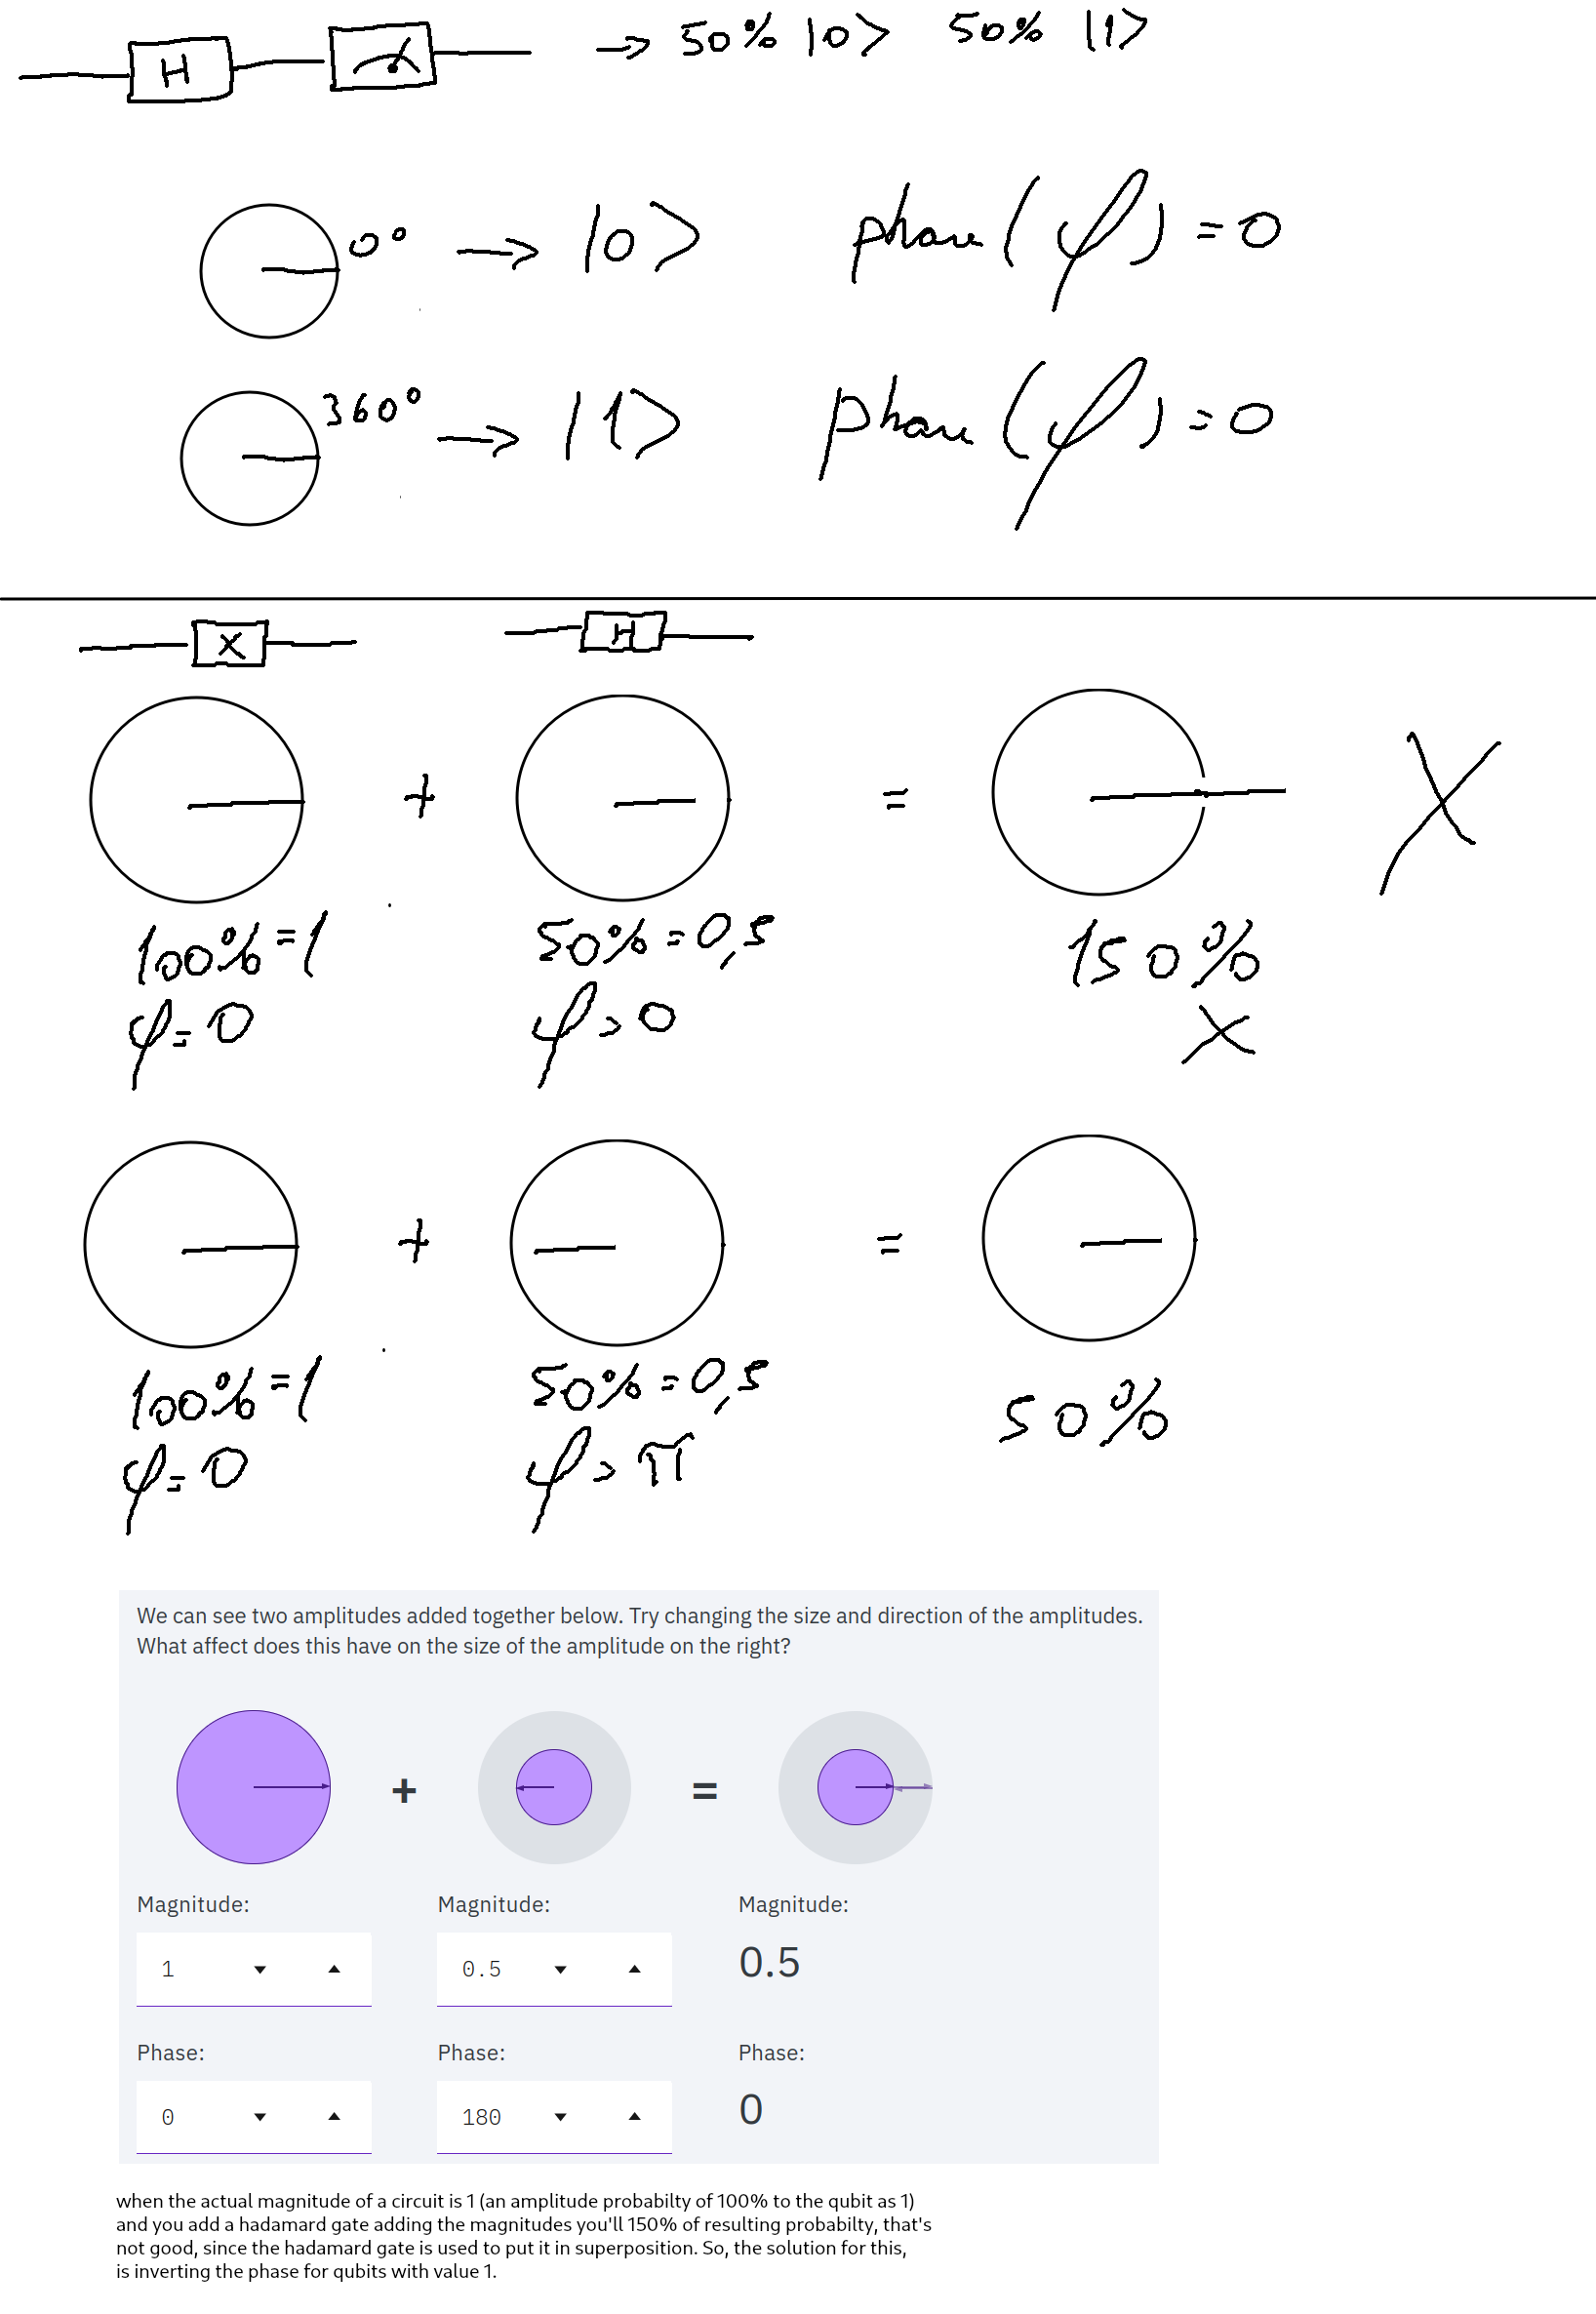 H → 50% |0> 50% |1>
0° → |0> phase (φ) = 0
360° → |1> phase (φ) = 0
X H
+ = X
100% = 1 50% = 0,5 150%
φ = 0 φ = 0 X
+ =
100% = 1 50% = 0,5 50%
φ = 0 φ = π
We can see two amplitudes added together below. Try changing the size and direction of the amplitudes.
What affect does this have on the size of the amplitude on the right?
+ =
Magnitude: Magnitude: Magnitude:
1 0.5 0.5
Phase: Phase: Phase:
0 180 0
when the actual magnitude of a circuit is 1 (an amplitude probabilty of 100% to the qubit as 1)
and you add a hadamard gate adding the magnitudes you'll 150% of resulting probabilty, that's
not good, since the hadamard gate is used to put it in superposition. So, the solution for this,
is inverting the phase for qubits with value 1.